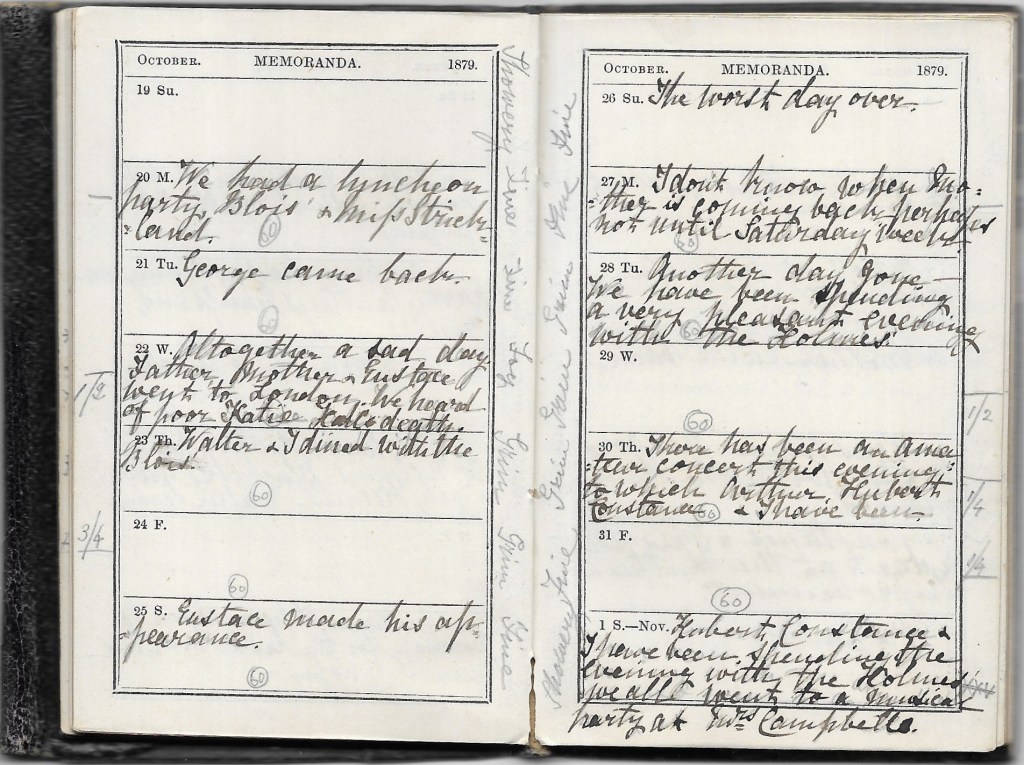 October. MEMORANDA. 1879.
19 Su.
20 M. We had a luncheon
party, Blois' & Miss Strick=
=land.
60
21 Tu. George came back.
60
22 W. Altogether a sad day
Father, Mother & Eustace
went to London. We heard
of poor Katie death.
23 Th. Walter & I dined with the
Blois.
60
24 F.
60
25 S. Eustace made his ap=
=pearance.
60
1
1/2
3/4
Showery Fine Fine Fog Grim Grim Fine
Showery Fine Grim Grim Fine Fine
October. MEMORANDA. 1879.
26 Su. The worst day over.
27 M. I don't know when Mo=
=ther is coming back perhaps
not until Saturday week.
60
28 Tu. Another day gone
We have been spending
a very pleasant evening
with the Holmes'
60
29 W.
60
30 Th. There has been an ama
=teur concert this evening
to which Arthur, Hubert
Constance & I have been.
60
31 F.
60
1 S.—Nov. Hubert, Constance &
I have been spending the
evening with the Holmes
we all went to a musical
party at Mrs Campbells.
1/2
1/4
1/4